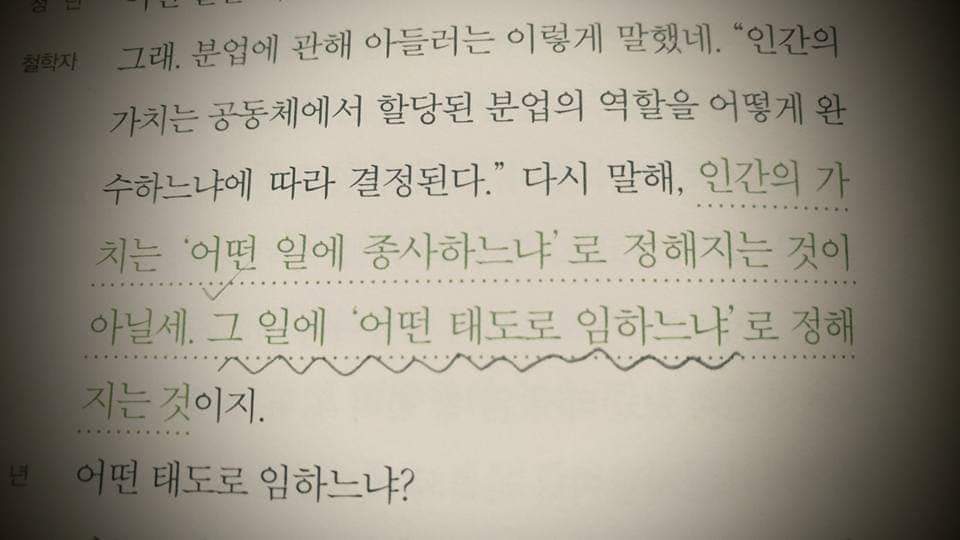 철학자 그래. 분업에 관해 아들러는 이렇게 말했네. “인간의
가치는 공동체에서 할당된 분업의 역할을 어떻게 완
수하느냐에 따라 결정된다.” 다시 말해, 인간의 가
치는 ‘어떤 일에 종사하느냐’로 정해지는 것이
아닐세. 그 일에 ‘어떤 태도로 임하느냐’로 정해
지는 것이지.
년 어떤 태도로 임하느냐?